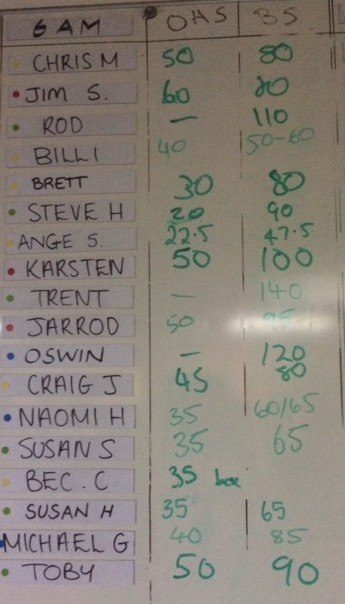 6AM OHS BS
CHRIS M 50 80
JIM S. 60 80
ROD — 110
BILLI 40 50-60
BRETT 30 80
STEVE H 20 90
ANGE S. 22.5 47.5
KARSTEN 50 100
TRENT — 140
JARROD 50 95
OSWIN — 120
CRAIG J 45 80
NAOMI H 35 60/65
SUSAN S 35 65
BEC.C 35 box
SUSAN H 35 65
MICHAEL G 40 85
TOBY 50 90